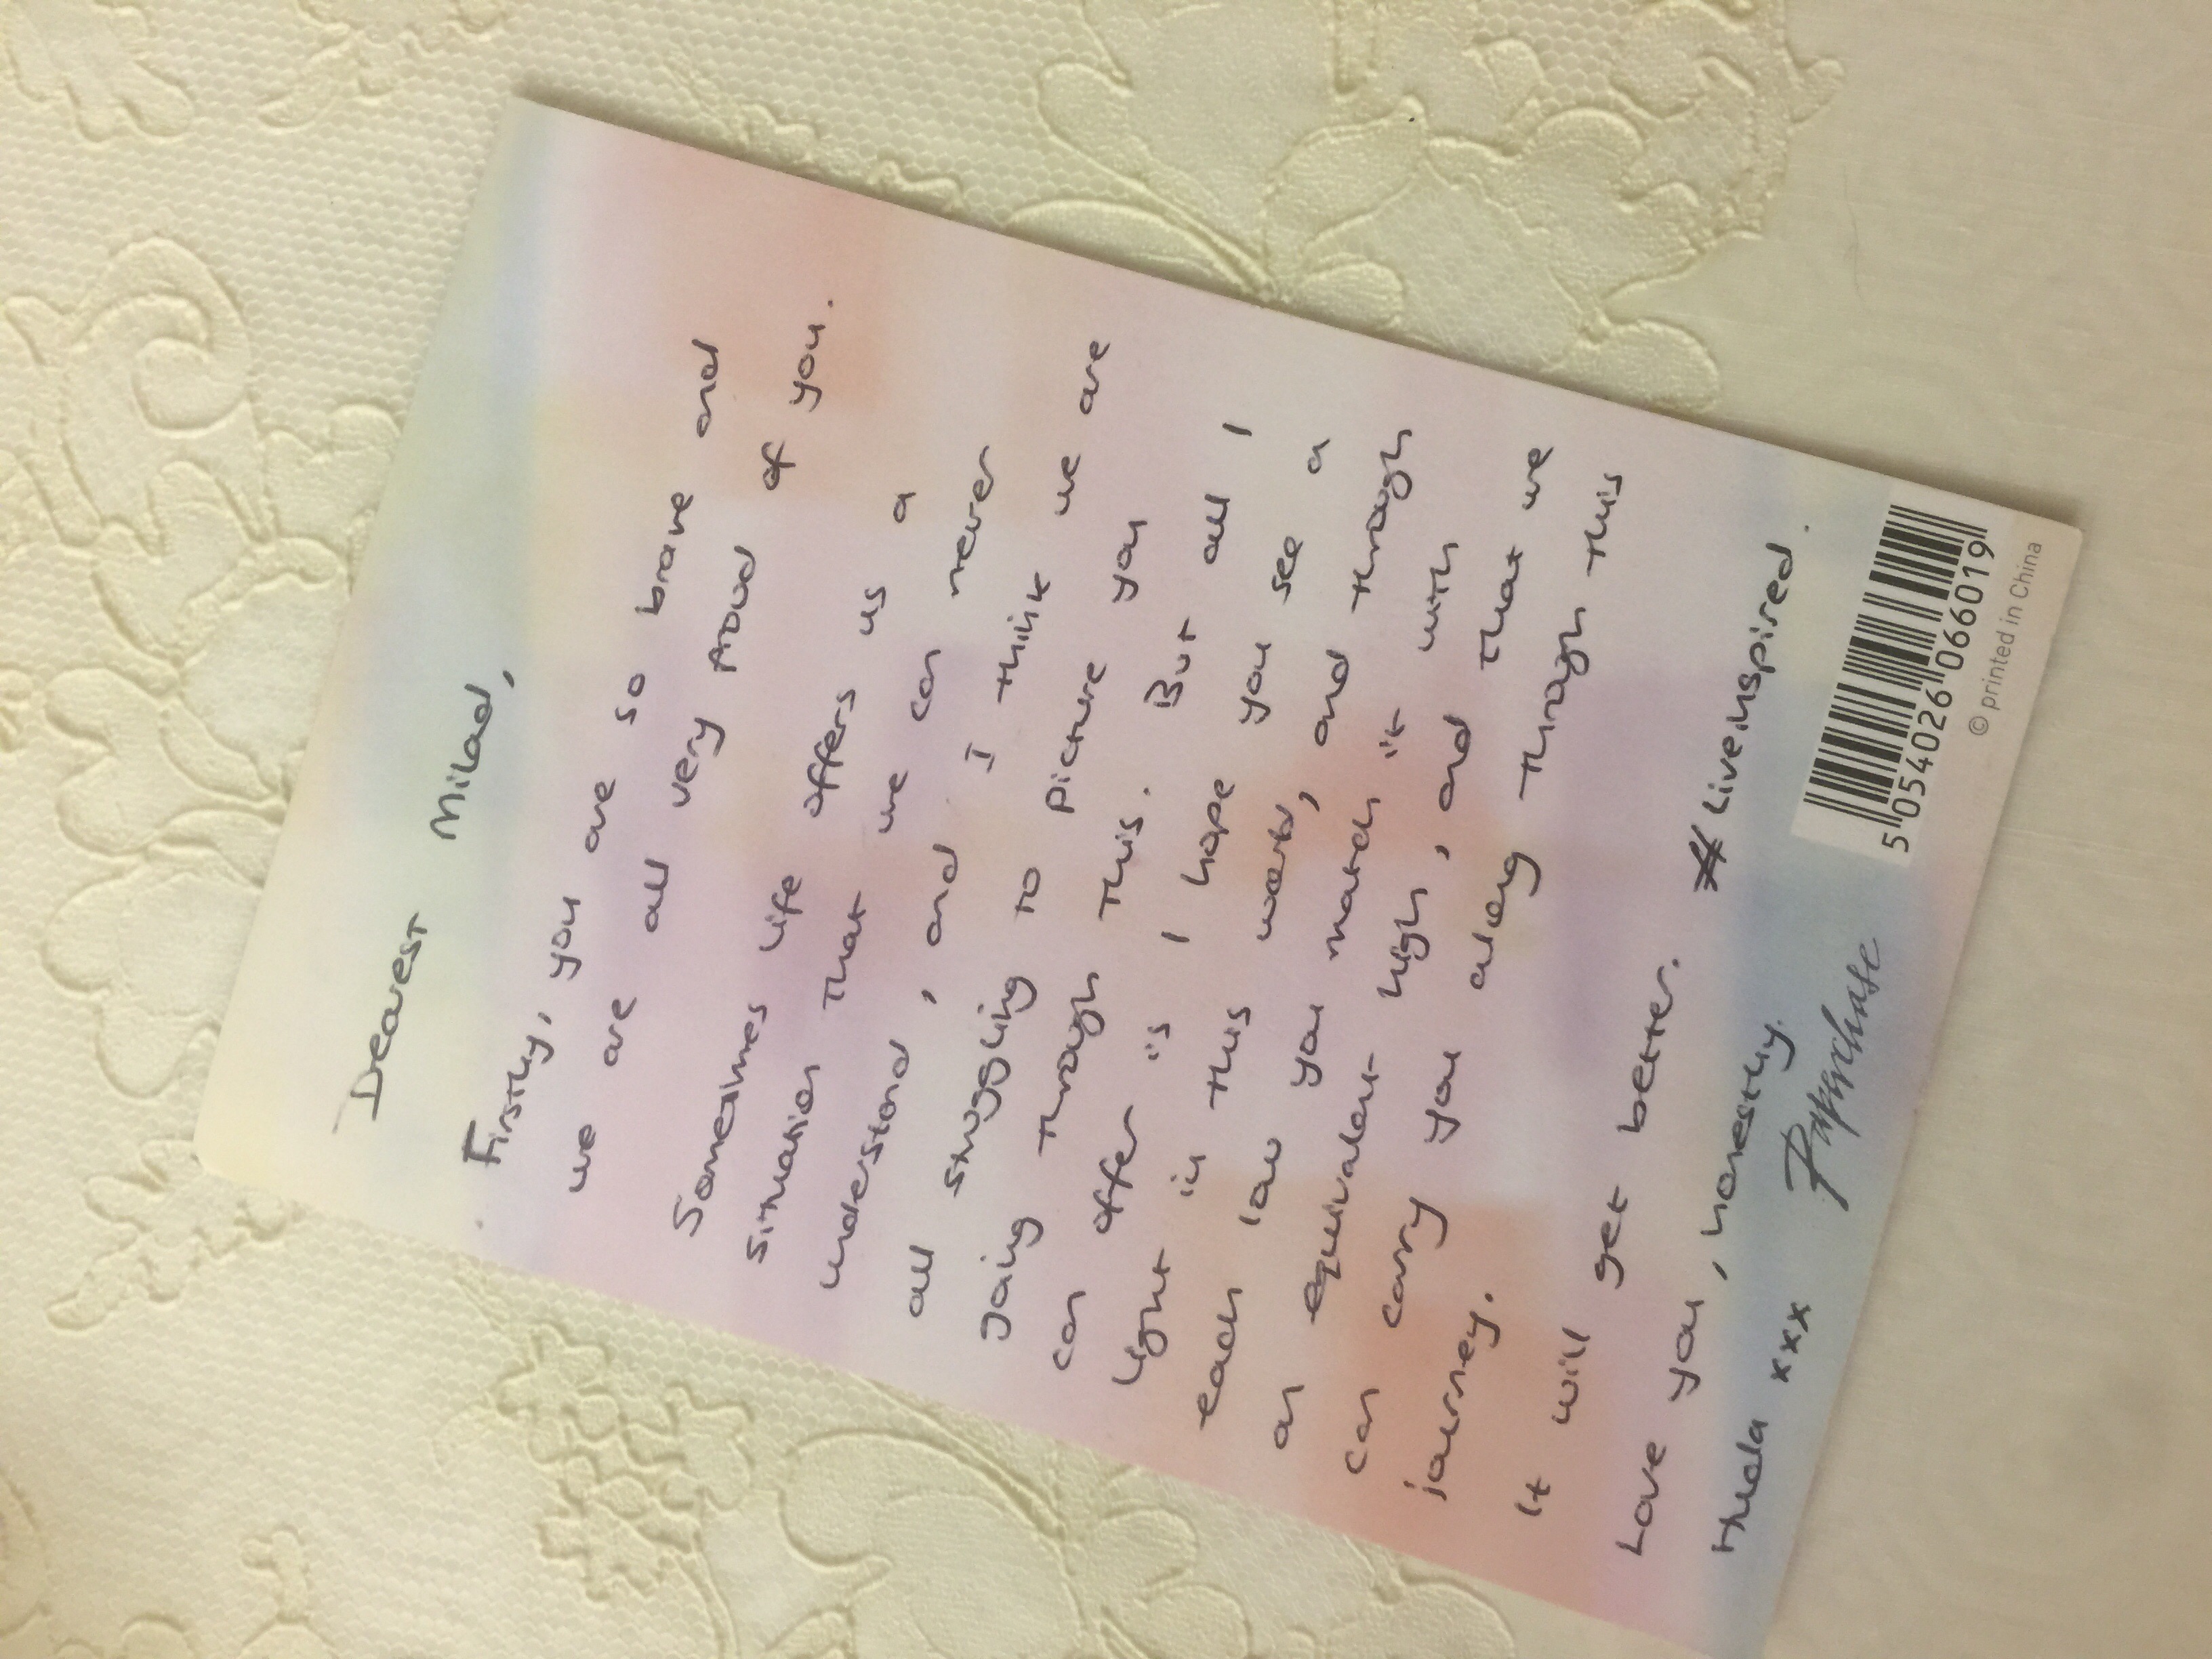 Dearest Milad,
Firstly, you are so brave and
we are all very proud of you.
Sometimes life offers us a
situation that we can never
understand, and I think we are
all struggling to picture you
going through this. But all I
can offer is I hope you see a
light in this world, and through
each low you match it with
an equivalent high, and that we
can carry you along through this
journey.
It will get better. #Liveinspired.
Love you, honestly.
xxx
Paperchase
5 054026 066019
© printed in China